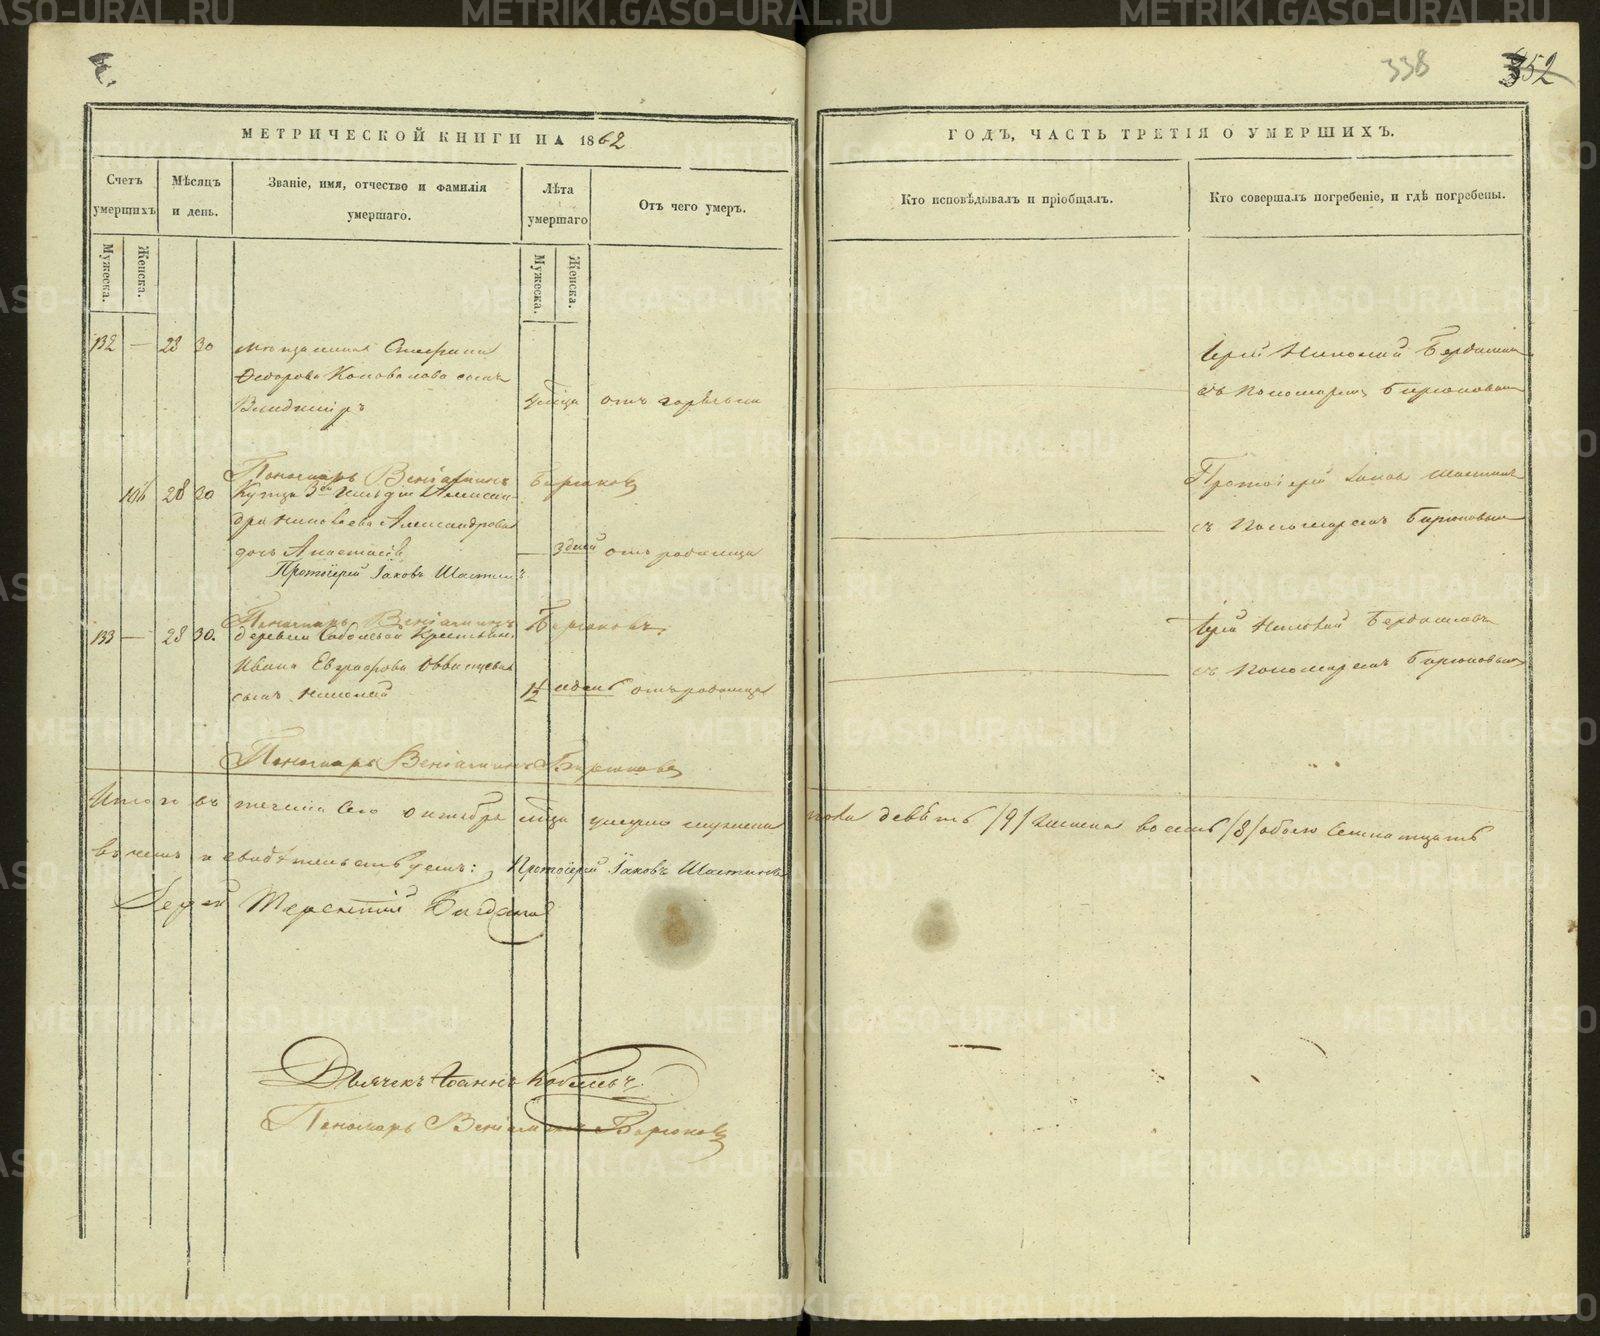 338
352
МЕТРИЧЕСКОЙ КНИГИ НА 1862
ГОДЪ, ЧАСТЬ ТРЕТІЯ О УМЕРШИХЪ.
Счетъ умершихъ
Мѣсяцъ и день.
Званіе, имя, отчество и фамилія умершаго.
Лѣта умершаго
Отъ чего умеръ.
Кто исповѣдывалъ и пріобщалъ.
Кто совершалъ погребеніе, и гдѣ погребены.
Мужеска.
Женска.
Мужеска.
Женска.
132 — 28 30
Федорова Коновалова сынъ
Владимиръ
отъ горячки
Іерей Николай Бердинскій
съ Пономаремъ Бирюковым
Пономарь Веніаминъ Бирюковъ
106 28 30 Купца 3ей Гильдіи Алексан-
дра Николаева Александрова
дочь Анастасія 3 дней отъ родимца
Протоіерей Іаковъ Шастинъ
съ Пономаремъ Бирюковым
Протоіерей Іаковъ Шастинъ
Пономарь Веніаминъ Бирюковъ.
133 — 28 30. деревни Соболевой Крестьян.
Ивана Евграфова
сынъ Николай 1/2 отъ родимца
Іерей Николай
съ Пономаремъ Бирюковым
Пономарь Веніаминъ Бирюковъ
Итого въ теченіи сего октября м-ца умерло мужеска пола девять /9/ женска восемь /8/ обоего семнатцать
въ чемъ и свидѣтельствуемъ: Протоіерей Іаковъ Шастинъ
Іерей Терентій Богдановъ
Дьячекъ Іоаннъ
Пономарь Веніаминъ Бирюковъ
METRIKI.GASO-URAL.RU